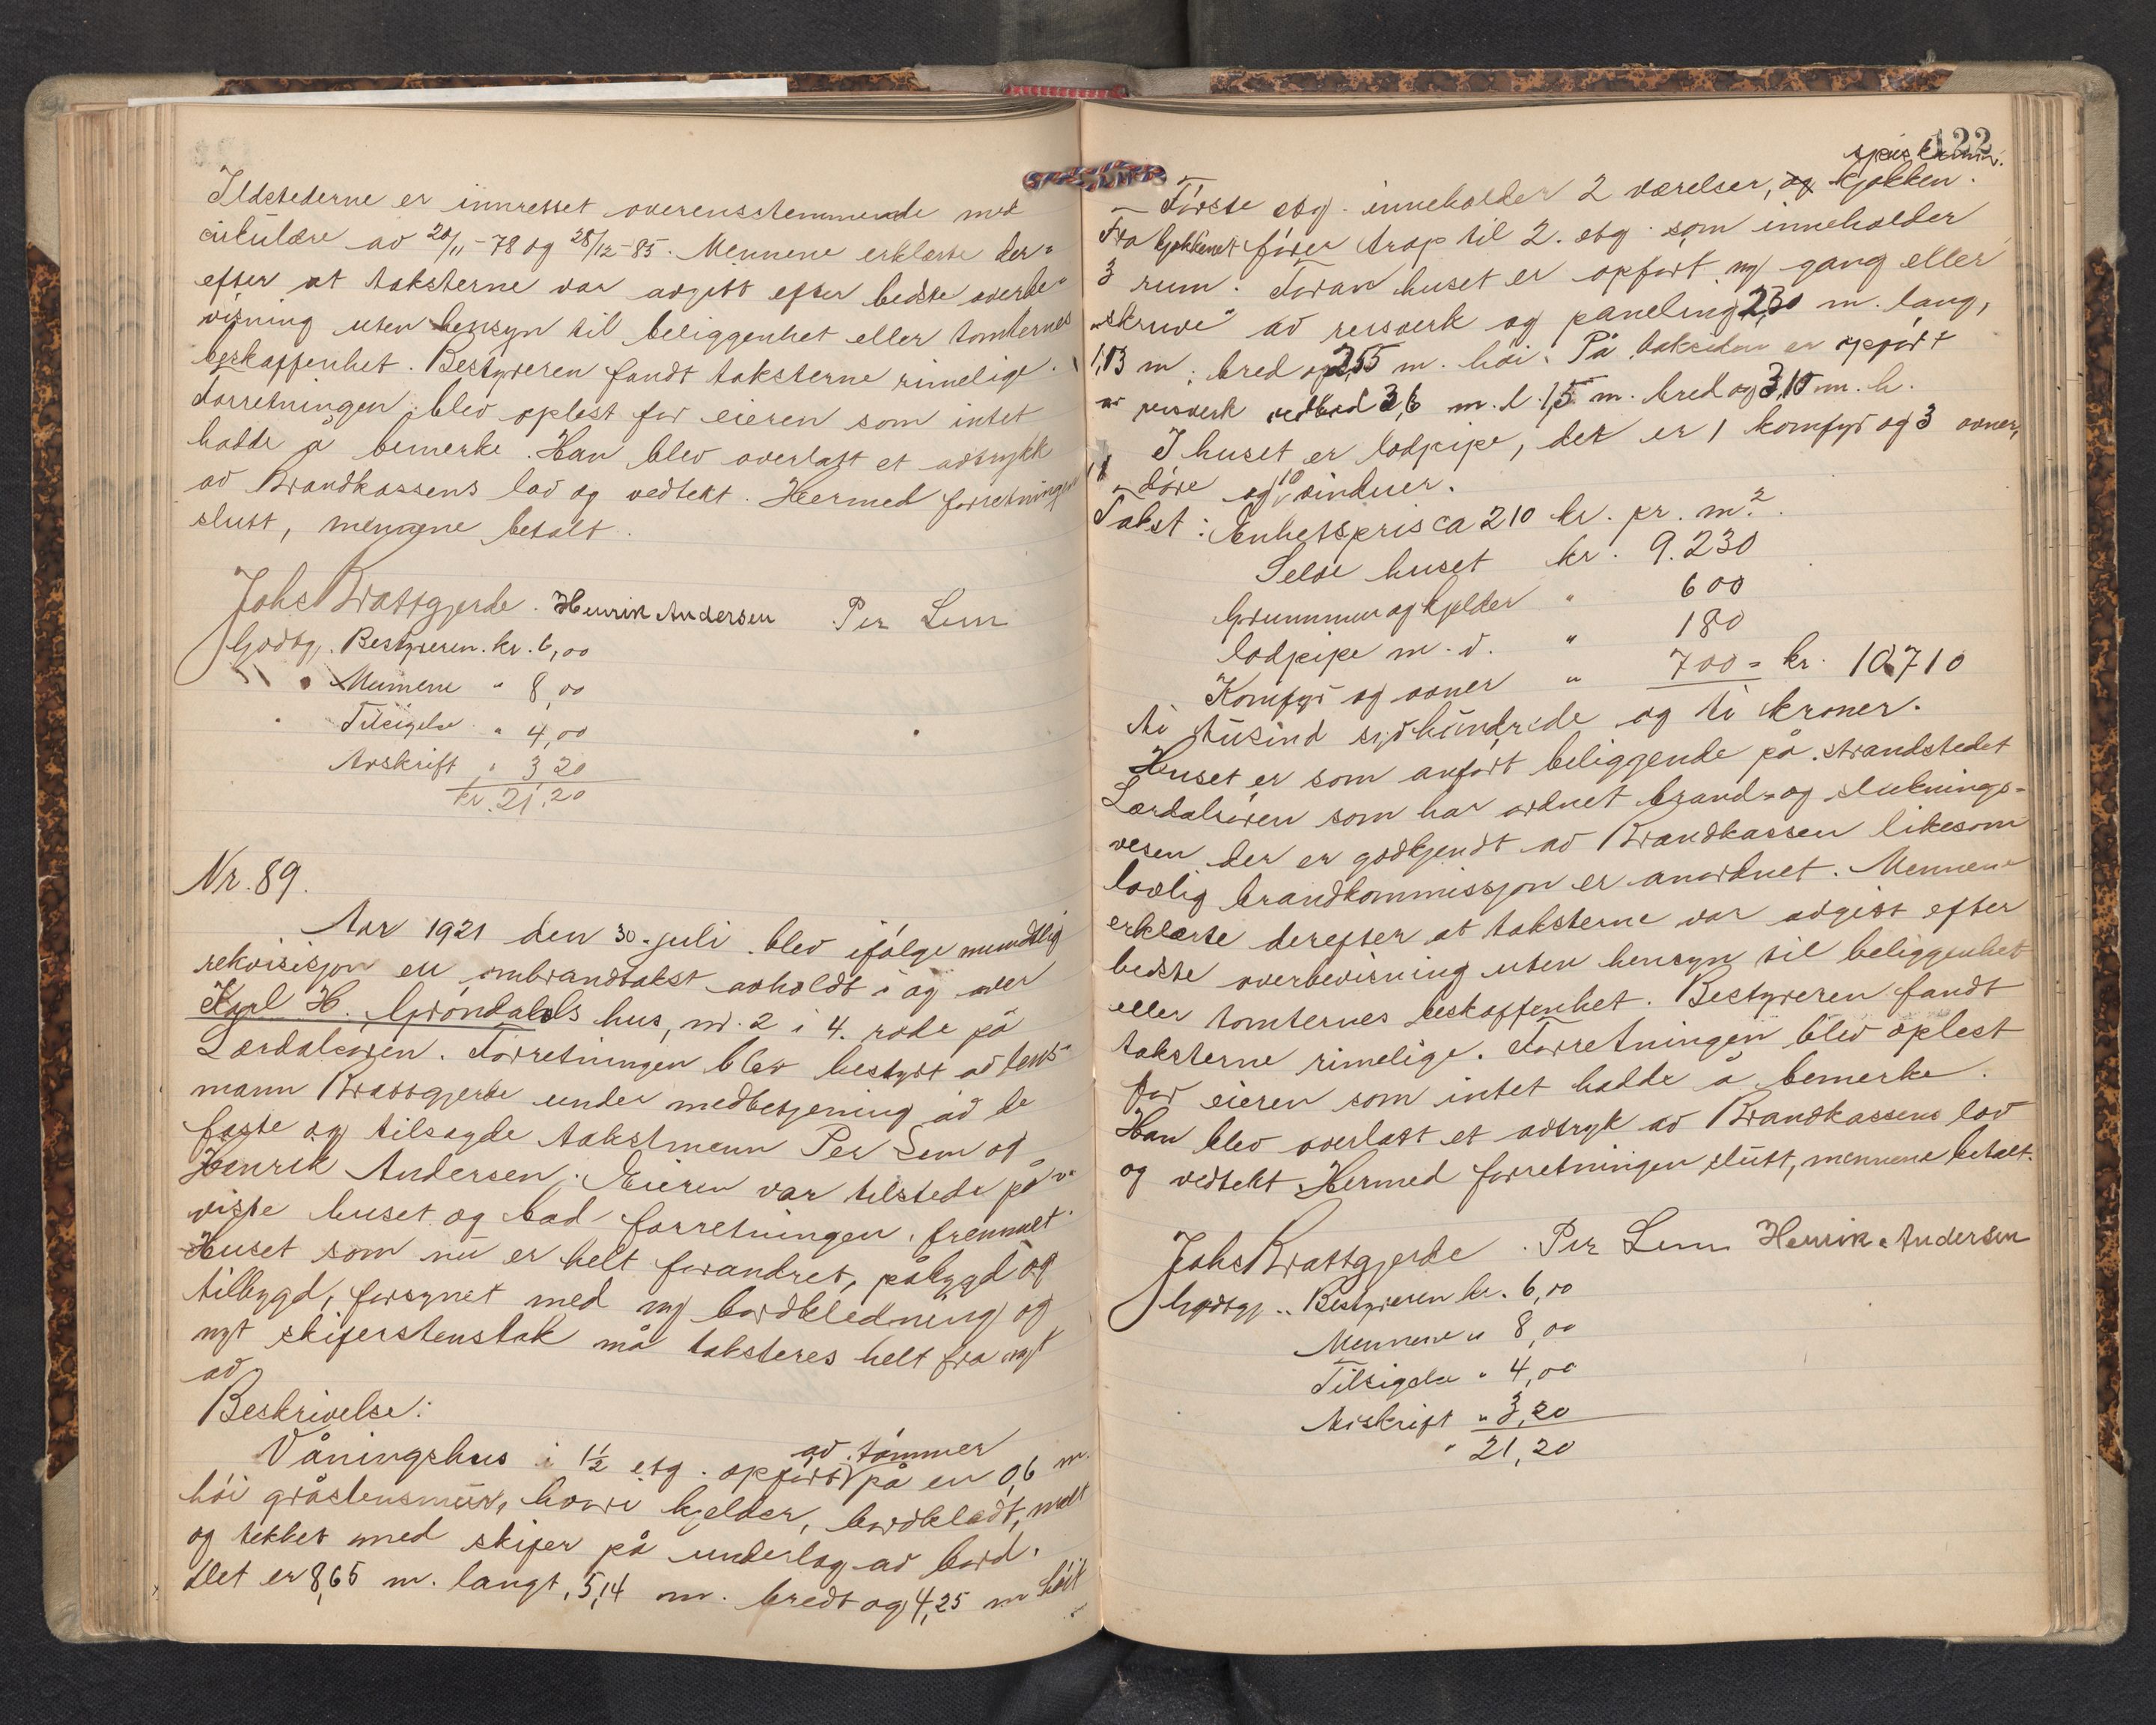 Ildstederne er innrettet overensstemmende med
cirkulære av 20/11-78 og 28/12-85. Mennene erklærte der-
efter at taksterne var avgitt efter bedste overbe-
visning uten hensyn til beliggenhet eller tomternes
beskaffenhet. Bestyreren fandt taksterne rimelige.
Forretningen blev oplest for eieren som intet
hadde å bemerke. Han blev overlatt et avtrykk
av Brandkassens lov og vedtekt. Hermed forretningen
slutt, mennene betalt.
Johs Brattgjerde. Henrik Andersen Per Lem
Godtgj. Bestyreren. kr. 6,00
" Mennene " 8,00
" Tilsigelse " 4,00
Avskrift " 3,20
kr. 21,20
Nr. 89.
Aar 1921 den 30. juli blev ifølge mundtlig
rekvisisjon en ombrandtakst avholdt i og over
Karl H. Grøndahls hus, nr. 2 i 4. rode på
Lærdalsøren. Forretningen blev bestyrt av lens-
mann Brattgjerde under medbetjening av de
faste og tilsagde takstmenn Per Lem og
Henrik Andersen. Eieren var tilstede på-
viste huset og bad forretningen fremmet.
Huset som nu er helt forandret, påbygd og
tilbygd, forsynet med ny bordkledning og
nyt skiferstenstak må taksteres helt fra nyt
av
Beskrivelse:
Våningshus i 1½ etg. opført av tømmer på en 0,6 m.
høi gråstensmur, hvori kjelder, bordkledt, malt
og tekket med skifer på underlag av bord.
Det er 8,65 m. langt, 5,14 m. bredt og 4,25 m høit
122
Første etg. inneholder 2 værelser, og kjøkken. spiskamm.
Fra kjøkkenet fører trap til 2. etg. som inneholder
3 rum. Foran huset er opført ny gang eller
"skruve" av reisverk og paneling 2,30 m. lang,
1,83 m. bred og 2,55 m. høi. På baksiden er opført
av reisverk vedbod 3,6 m. l. 1,5 m. bred og 3,10 m. h.
I huset er lodpipe, der er 1 komfyr og 3 ovner,
11 døre og 10 vinduer.
Takst: Enhetspris ca 210 kr. pr. m².
Selve huset kr. 9.230
Grunnmur og kjelder " 600
lodpipe m. v. " 180
Komfyr og ovner " 700 = kr. 10710
ti tusind syvhundrede og ti kroner.
Huset er som anført beliggende på strandstedet
Lærdalsøren som har ordnet brand- og sluknings-
vesen der er godkjendt av Brandkassen likesom
lovlig brandkommissjon er anordnet. Mennene
erklærte derefter at taksterne var avgitt efter
bedste overbevisning uten hensyn til beliggenhet
eller tomternes beskaffenhet. Bestyreren fandt
taksterne rimelige. Forretningen blev oplest
for eieren som intet hadde å bemerke.
Han blev overlatt et avtryk av Brandkassens lov
og vedtekt. Hermed forretningen slutt, mennene betalt.
Johs Brattgjerde. Per Lem Henrik Andersen
Godtgj. Bestyreren kr. 6,00
Mennene " 8,00
Tilsigelse " 4,00
Avskrift " 3,20
" 21,20